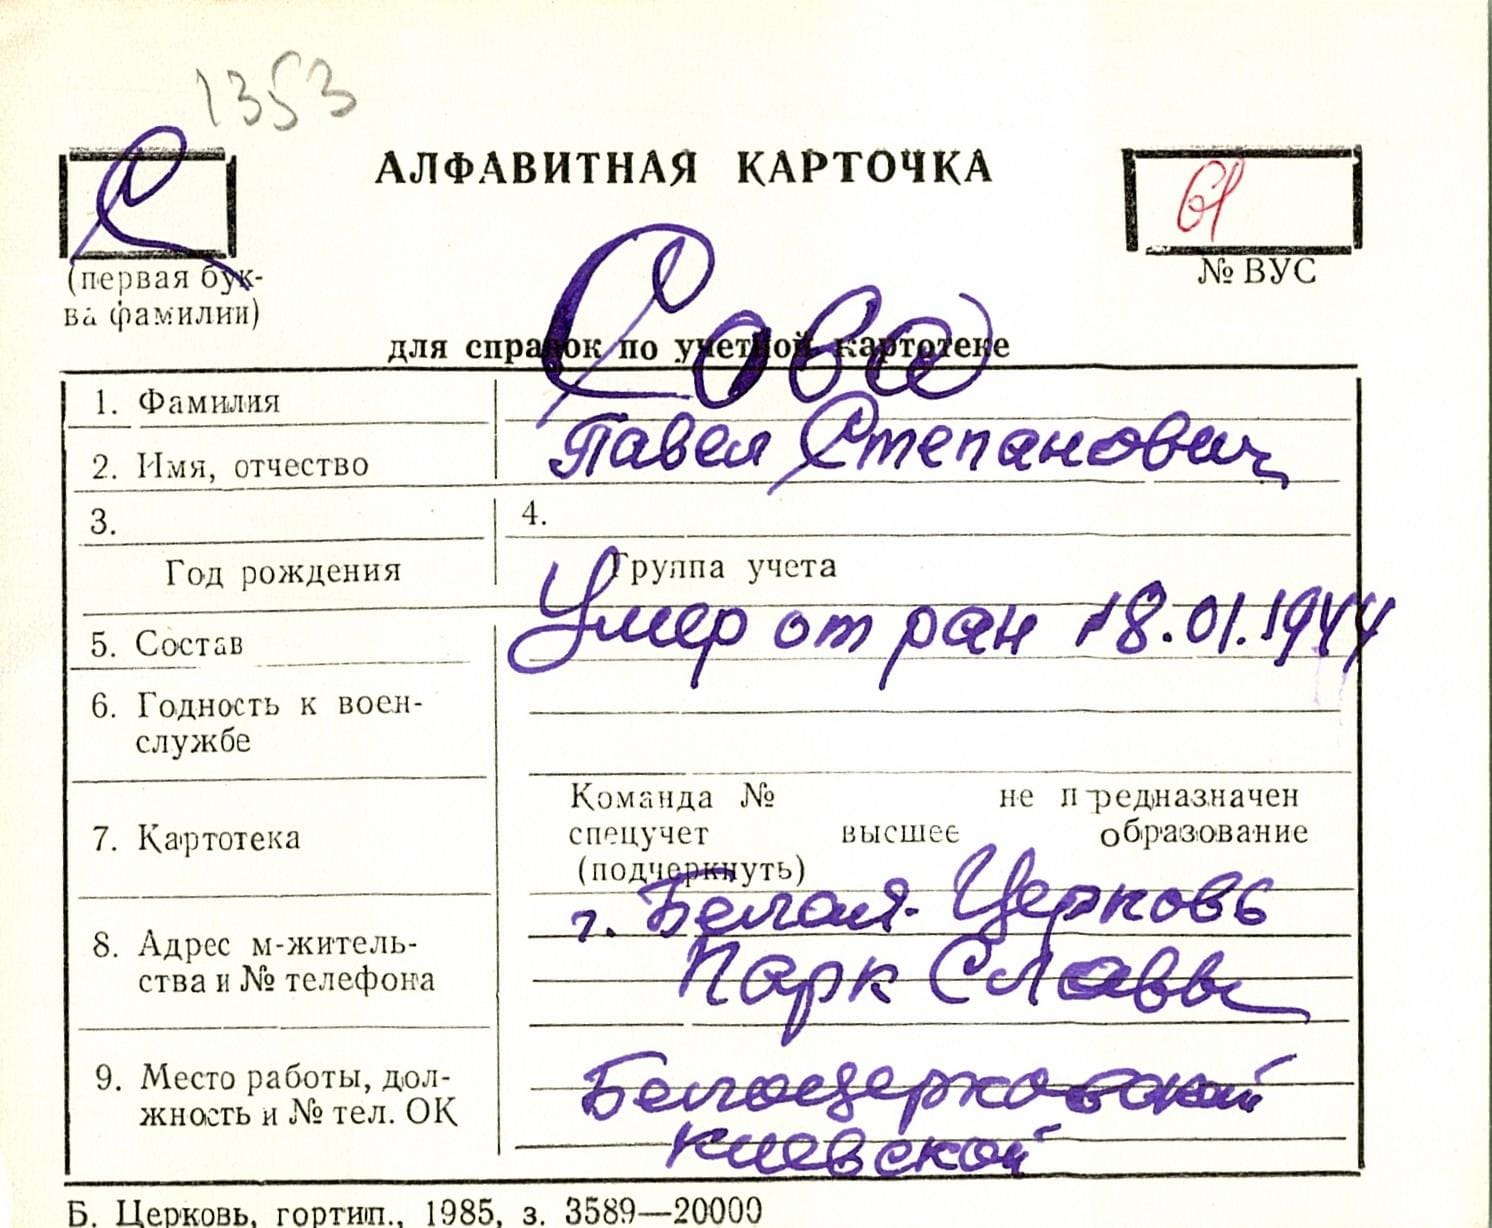 1353
С
АЛФАВИТНАЯ КАРТОЧКА
61
(первая бук-
ва фамилии)
№ ВУС
для справок по учетной картотеке
1. Фамилия Сова
2. Имя, отчество Павел Степанович
3. 4.
Год рождения Группа учета
Умер от ран 18.01.1944
5. Состав
6. Годность к воен-
службе
Команда № не предназначен
7. Картотека спецучет высшее образование
(подчеркнуть)
г. Белая-Церковь
8. Адрес м-житель-
ства и № телефона Парк Славы
9. Место работы, дол-
жность и № тел. ОК Белоцерковский
Киевской
Б. Церковь, гортип., 1985, з. 3589—20000